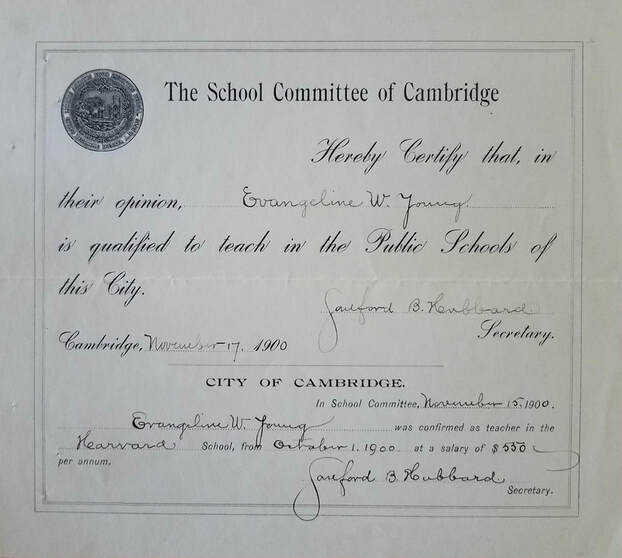 The School Committee of Cambridge
Hereby Certify that, in
their opinion, Evangeline W. Young.
is qualified to teach in the Public Schools of
this City.
Sanford B. Hubbard
Secretary.
Cambridge, November 17, 1900
CITY OF CAMBRIDGE.
In School Committee, November 15, 1900.
Evangeline W. Young was confirmed as teacher in the
Harvard School, from October 1, 1900 at a salary of $ 550
per annum.
Sanford B. Hubbard
Secretary.